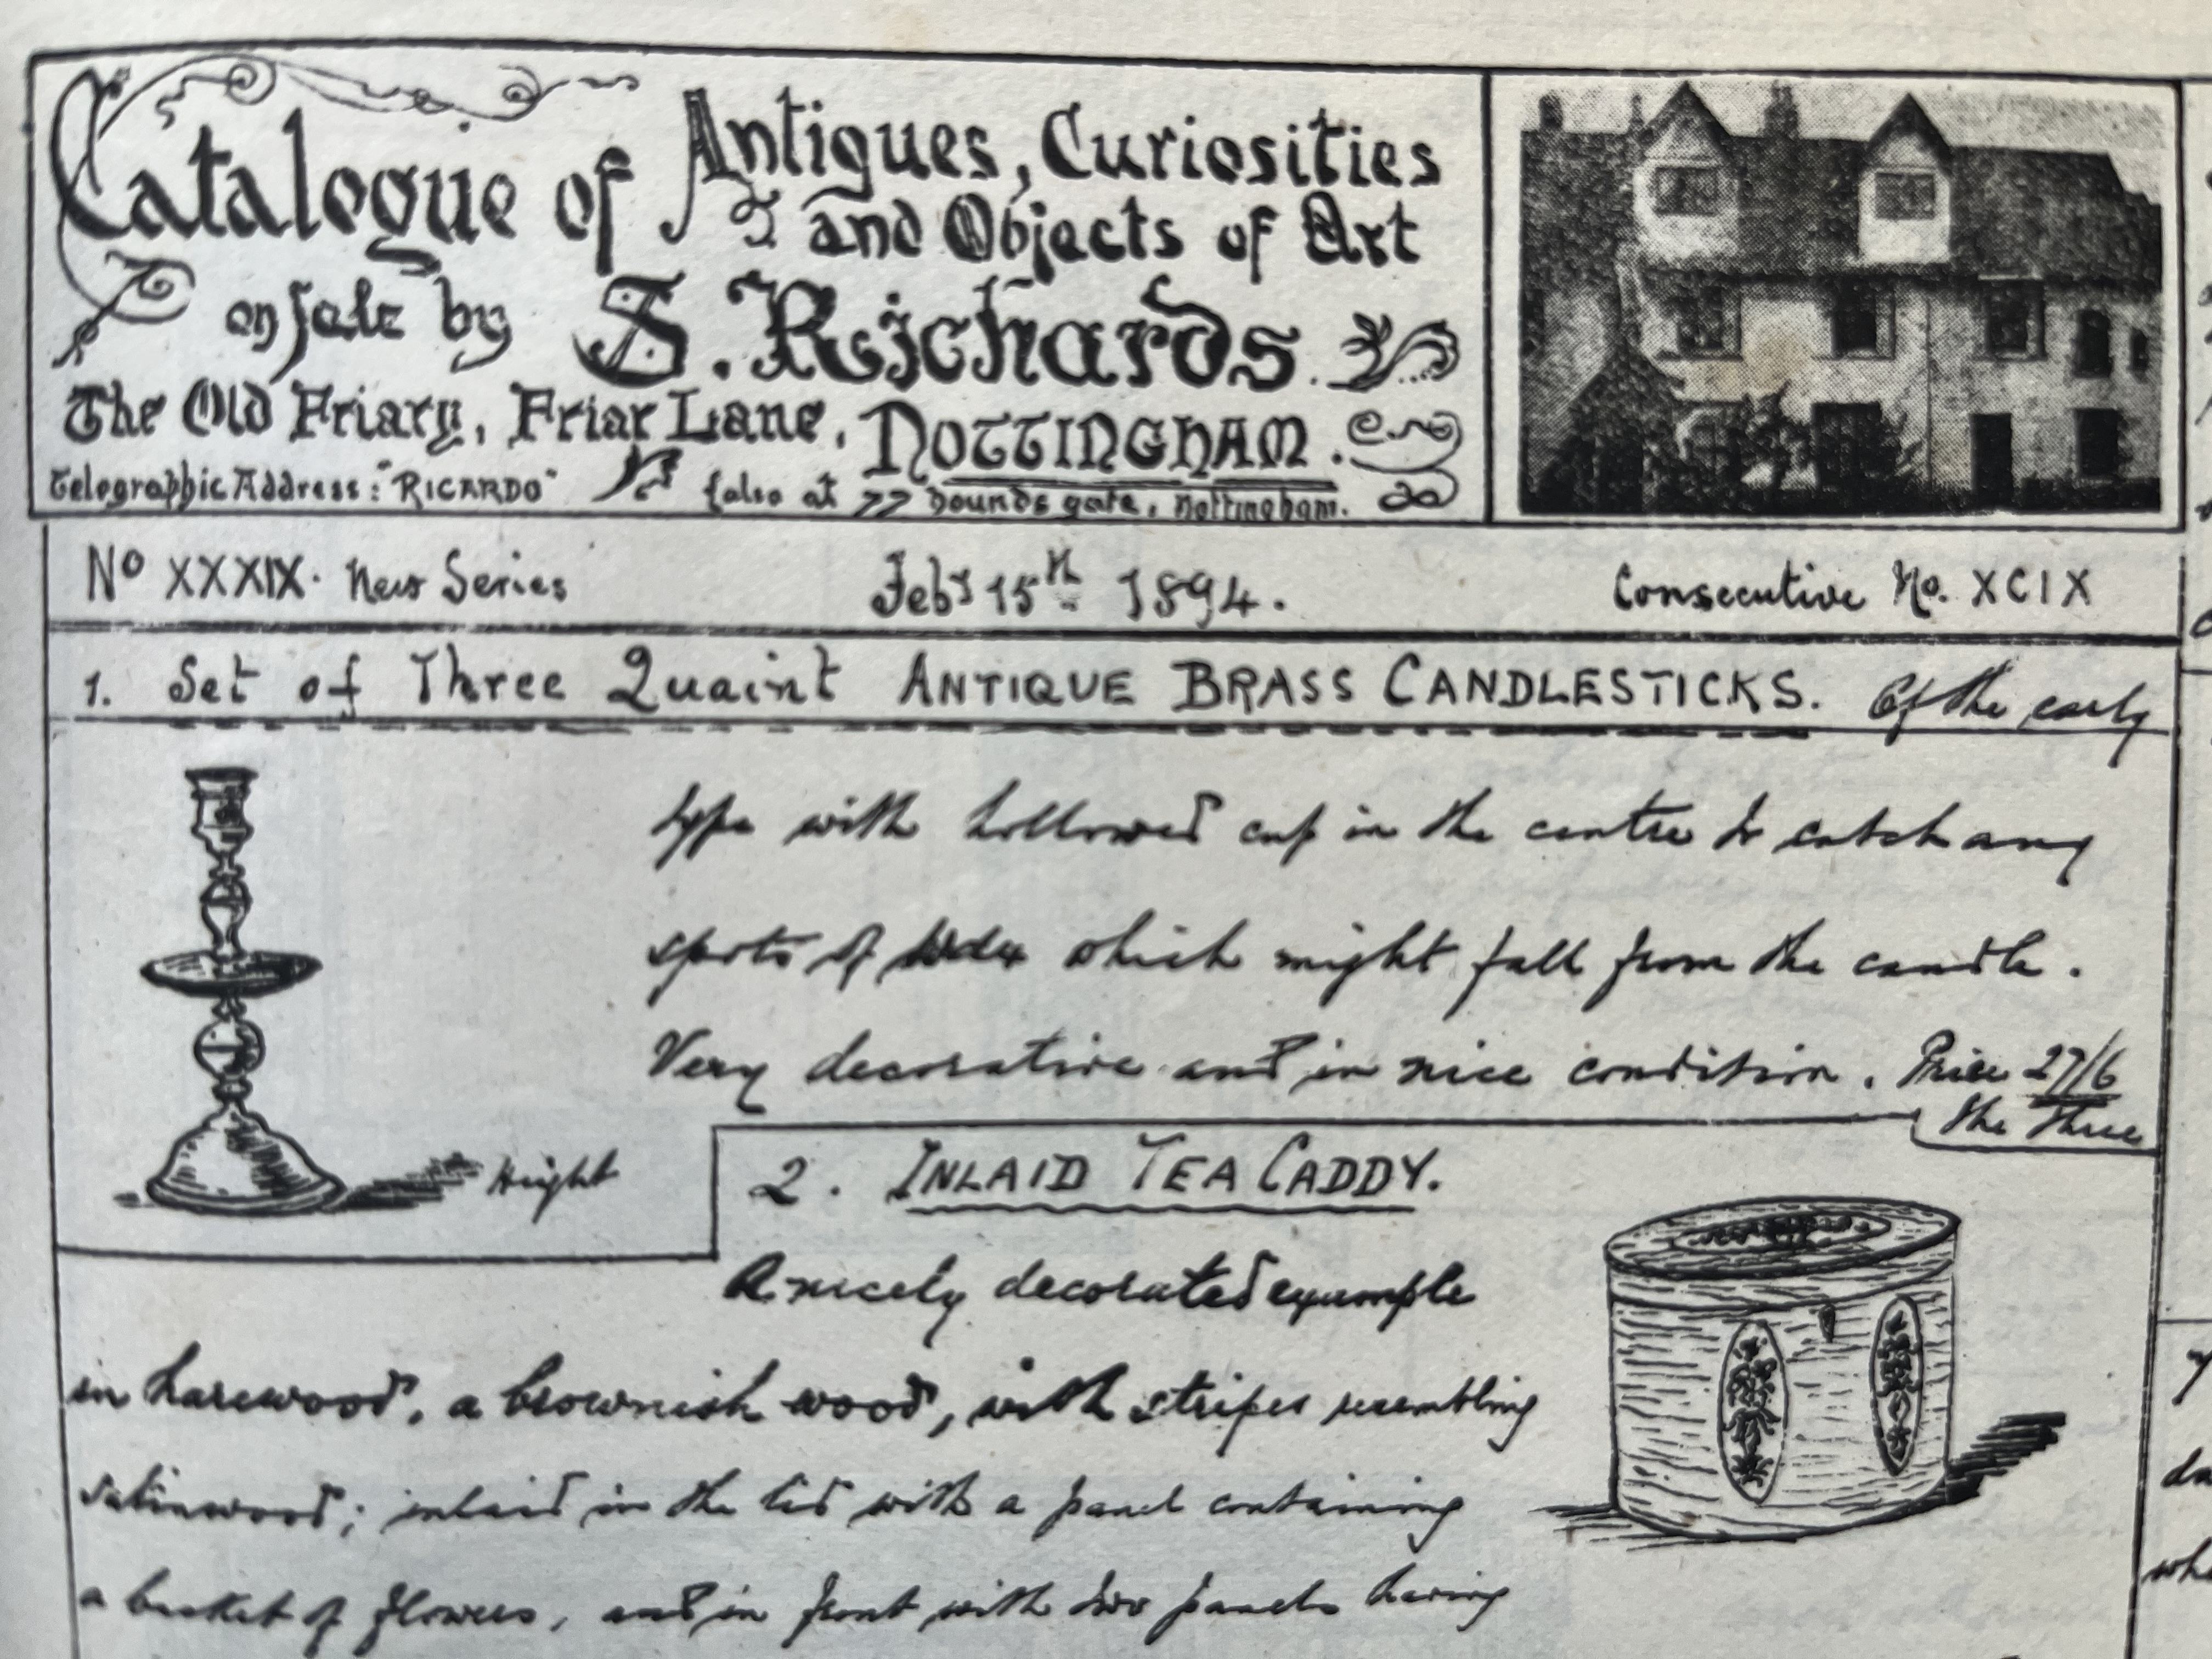 Catalogue of Antiques, Curiosities
and Objects of Art
on sale by S. Richards.
The Old Friary, Friar Lane, NOTTINGHAM.
Telegraphic Address: "RICARDO" (also at 77 Hounds gate, Nottingham.
No XXXIX. New Series Feby 15th 1894. Consecutive No. XCIX
1. Set of Three Quaint ANTIQUE BRASS CANDLESTICKS. Of the early
type with hollowed cup in the centre to catch any
spots of wax which might fall from the candle.
Very decorative and in nice condition. Price 27/6
the three
Height
2. INLAID TEA CADDY.
A nicely decorated example
in harewood, a brownish wood, with stripes resembling
satinwood; inlaid in the lid with a panel containing
a basket of flowers, and in front with two panels having